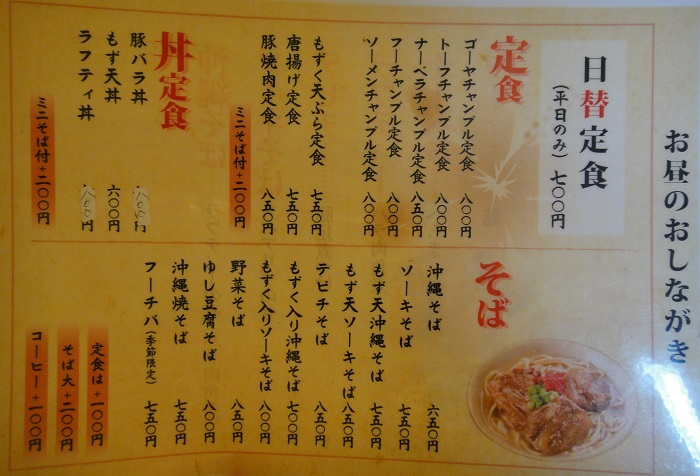 お昼のおしながき
日替定食
(平日のみ) 七〇〇円
定食
ゴーヤチャンプル定食 八〇〇円
トーフチャンプル定食 八〇〇円
ナーベラチャンプル定食 八五〇円
フーチャンプル定食 八〇〇円
ソーメンチャンプル定食 八〇〇円
もずく天ぷら定食 七五〇円
唐揚げ定食 七五〇円
豚焼肉定食 八五〇円
ミニそば付+二〇〇円
丼定食
豚バラ丼 八〇〇円
もず天丼 六〇〇円
ラフティ丼 八〇〇円
ミニそば付+二〇〇円
そば
沖縄そば 六五〇円
ソーキそば 七五〇円
もず天沖縄そば 七五〇円
もず天ソーキそば 八五〇円
テビチそば 八五〇円
もずく入り沖縄そば 七〇〇円
もずく入りソーキそば 八〇〇円
野菜そば 八五〇円
ゆし豆腐そば 八〇〇円
沖縄焼そば 七五〇円
フーチバ(季節限定) 七五〇円
定食は+一〇〇円
そば大+二〇〇円
コーヒー+一〇〇円